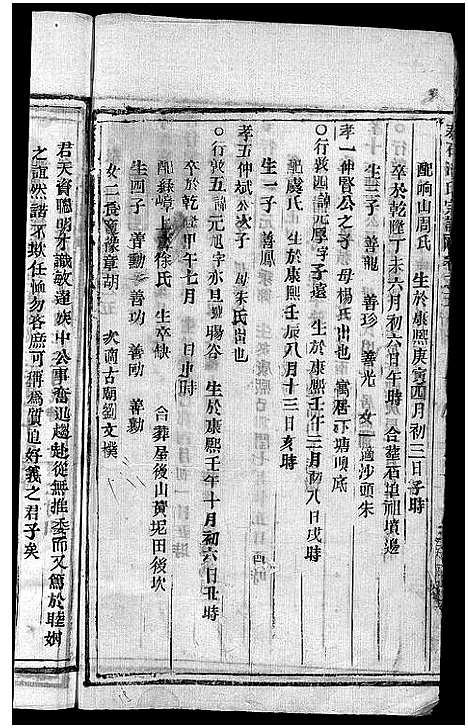 配响山周氏　生於康熙庚寅四月初三日子時
卒於乾隆丁未六月初六日午時　合葬石阜祖墳邊
生三子　善龍　善珍　善光　女一適沙頭朱
孝一仲賢公之子　母楊氏出也　寓居下塘頭底
○行敦四諱元學字子遠　生於康熙壬午三月初八日戌時
配虞氏　生於康熙壬辰八月十三日亥時
生一子　善鳳
孝五仲斌公次子　母朱氏出也
○行敦五諱元旭字亦旦號暘谷　生於康熙壬午十月初六日丑時
卒於乾隆甲午七月　日　時
配錄嶂上徐氏　生卒缺　合葬屋後山黄坭田後坎
生四子　善勲　善功　善助　善勷
女二長適緣章胡　次適古廟劉文樸
君天資聰明才識敏達族中公事奮迅趨赴從無推委而又篤於睦姻
之誼然諾不欺任恤勿吝庶可稱為質直好義之君子矣